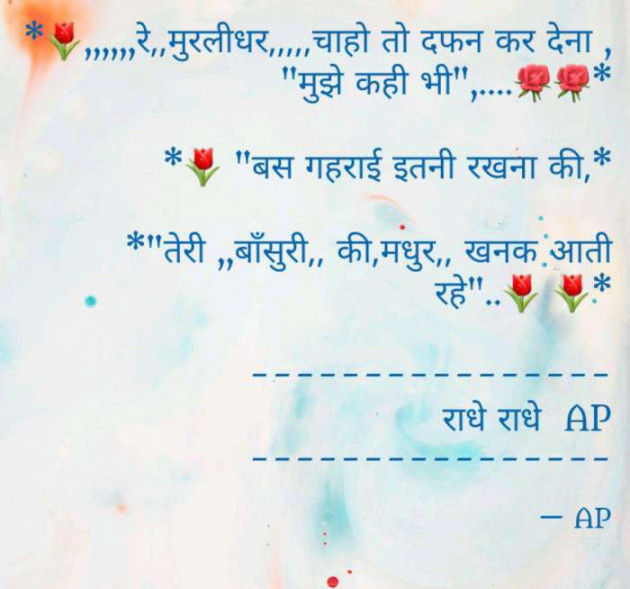 *🌷,,,,,,रे,,मुरलीधर,,,,,चाहो तो दफन कर देना ,
"मुझे कही भी",....🌹🌹*
*🌷 "बस गहराई इतनी रखना की,*
*"तेरी ,,बाँसुरी,, की,मधुर,, खनक आती
रहे"..🌷 🌷*
----------------
राधे राधे AP
----------------
— AP